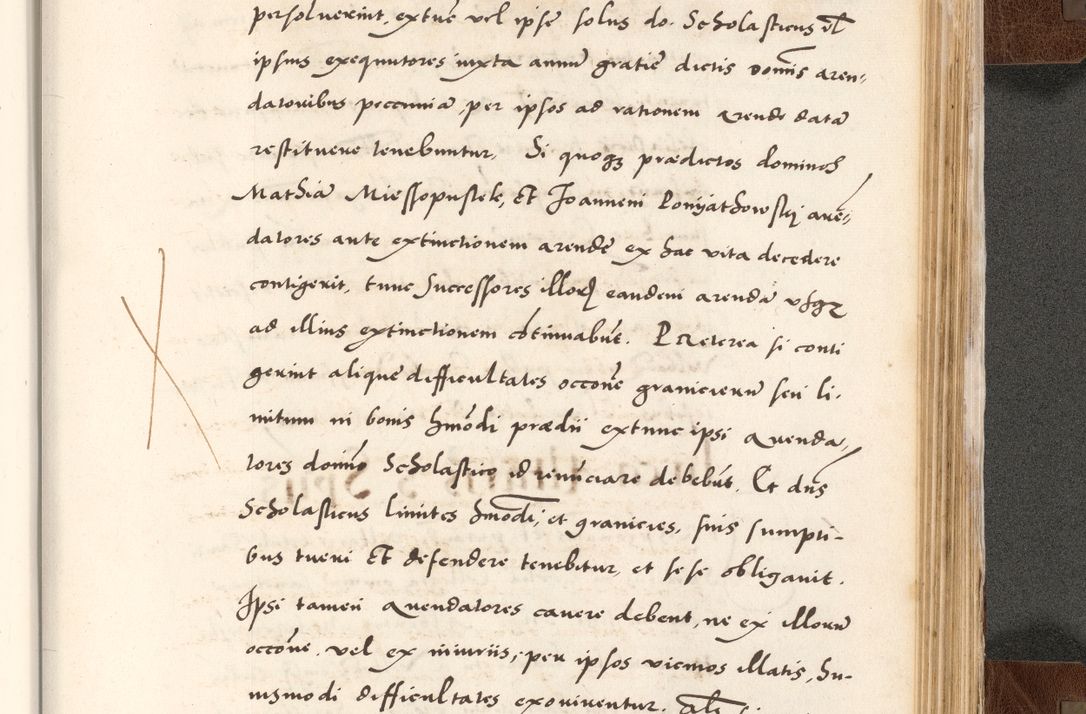 persolverint, extūc vel ipse solus do. Scholasticus vel
ipsius exequutores iuxta annū gratiē dictis domīs aren-
datoribus peccuniā per ipsos ad rationem arendę datā
restituere tenebuntur. Si quoqȝ prædictos dominos
Mathiā Miessopustek, Et Joannem Poniyathowskij arē-
datores ante extinctionem arendę ex hac vita decedere
contigerit, tunc Successores illorꝝ eandem arendā usqȝ
ad illius extinctionem cōtinuabūt. Præterea si conti
gerint aliquę difficultates occōne granicierū seu li-
mitum in bonis hmōdi prædii extunc ipsi Arenda-
tores domīo Scholastico id renūciare debebūt. Et dn̄s
Scholasticus limites hmōdi, et granicies, suis sumpti-
bus tueri Et defendere tenebitur, et sese obligavit.
Ipsi tamen Arendatores cavere debent, ne ex illorū
occōne, vel ex iniuriis, per ipsos vicinos illatis, hu-
iusmodi difficultates exoriventur.